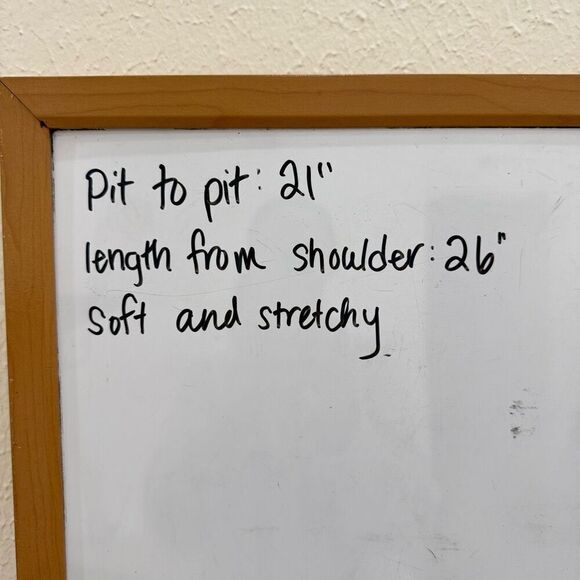 Pit to pit: 21"
length from shoulder: 26"
Soft and stretchy